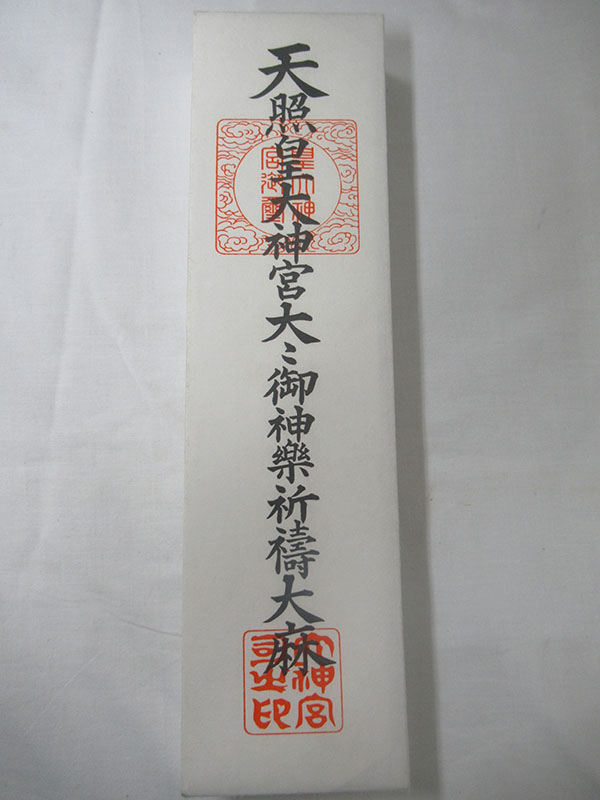 天照皇大神宮大〻御神樂祈禱大麻
皇大神
宮御璽
大神宮
司之印